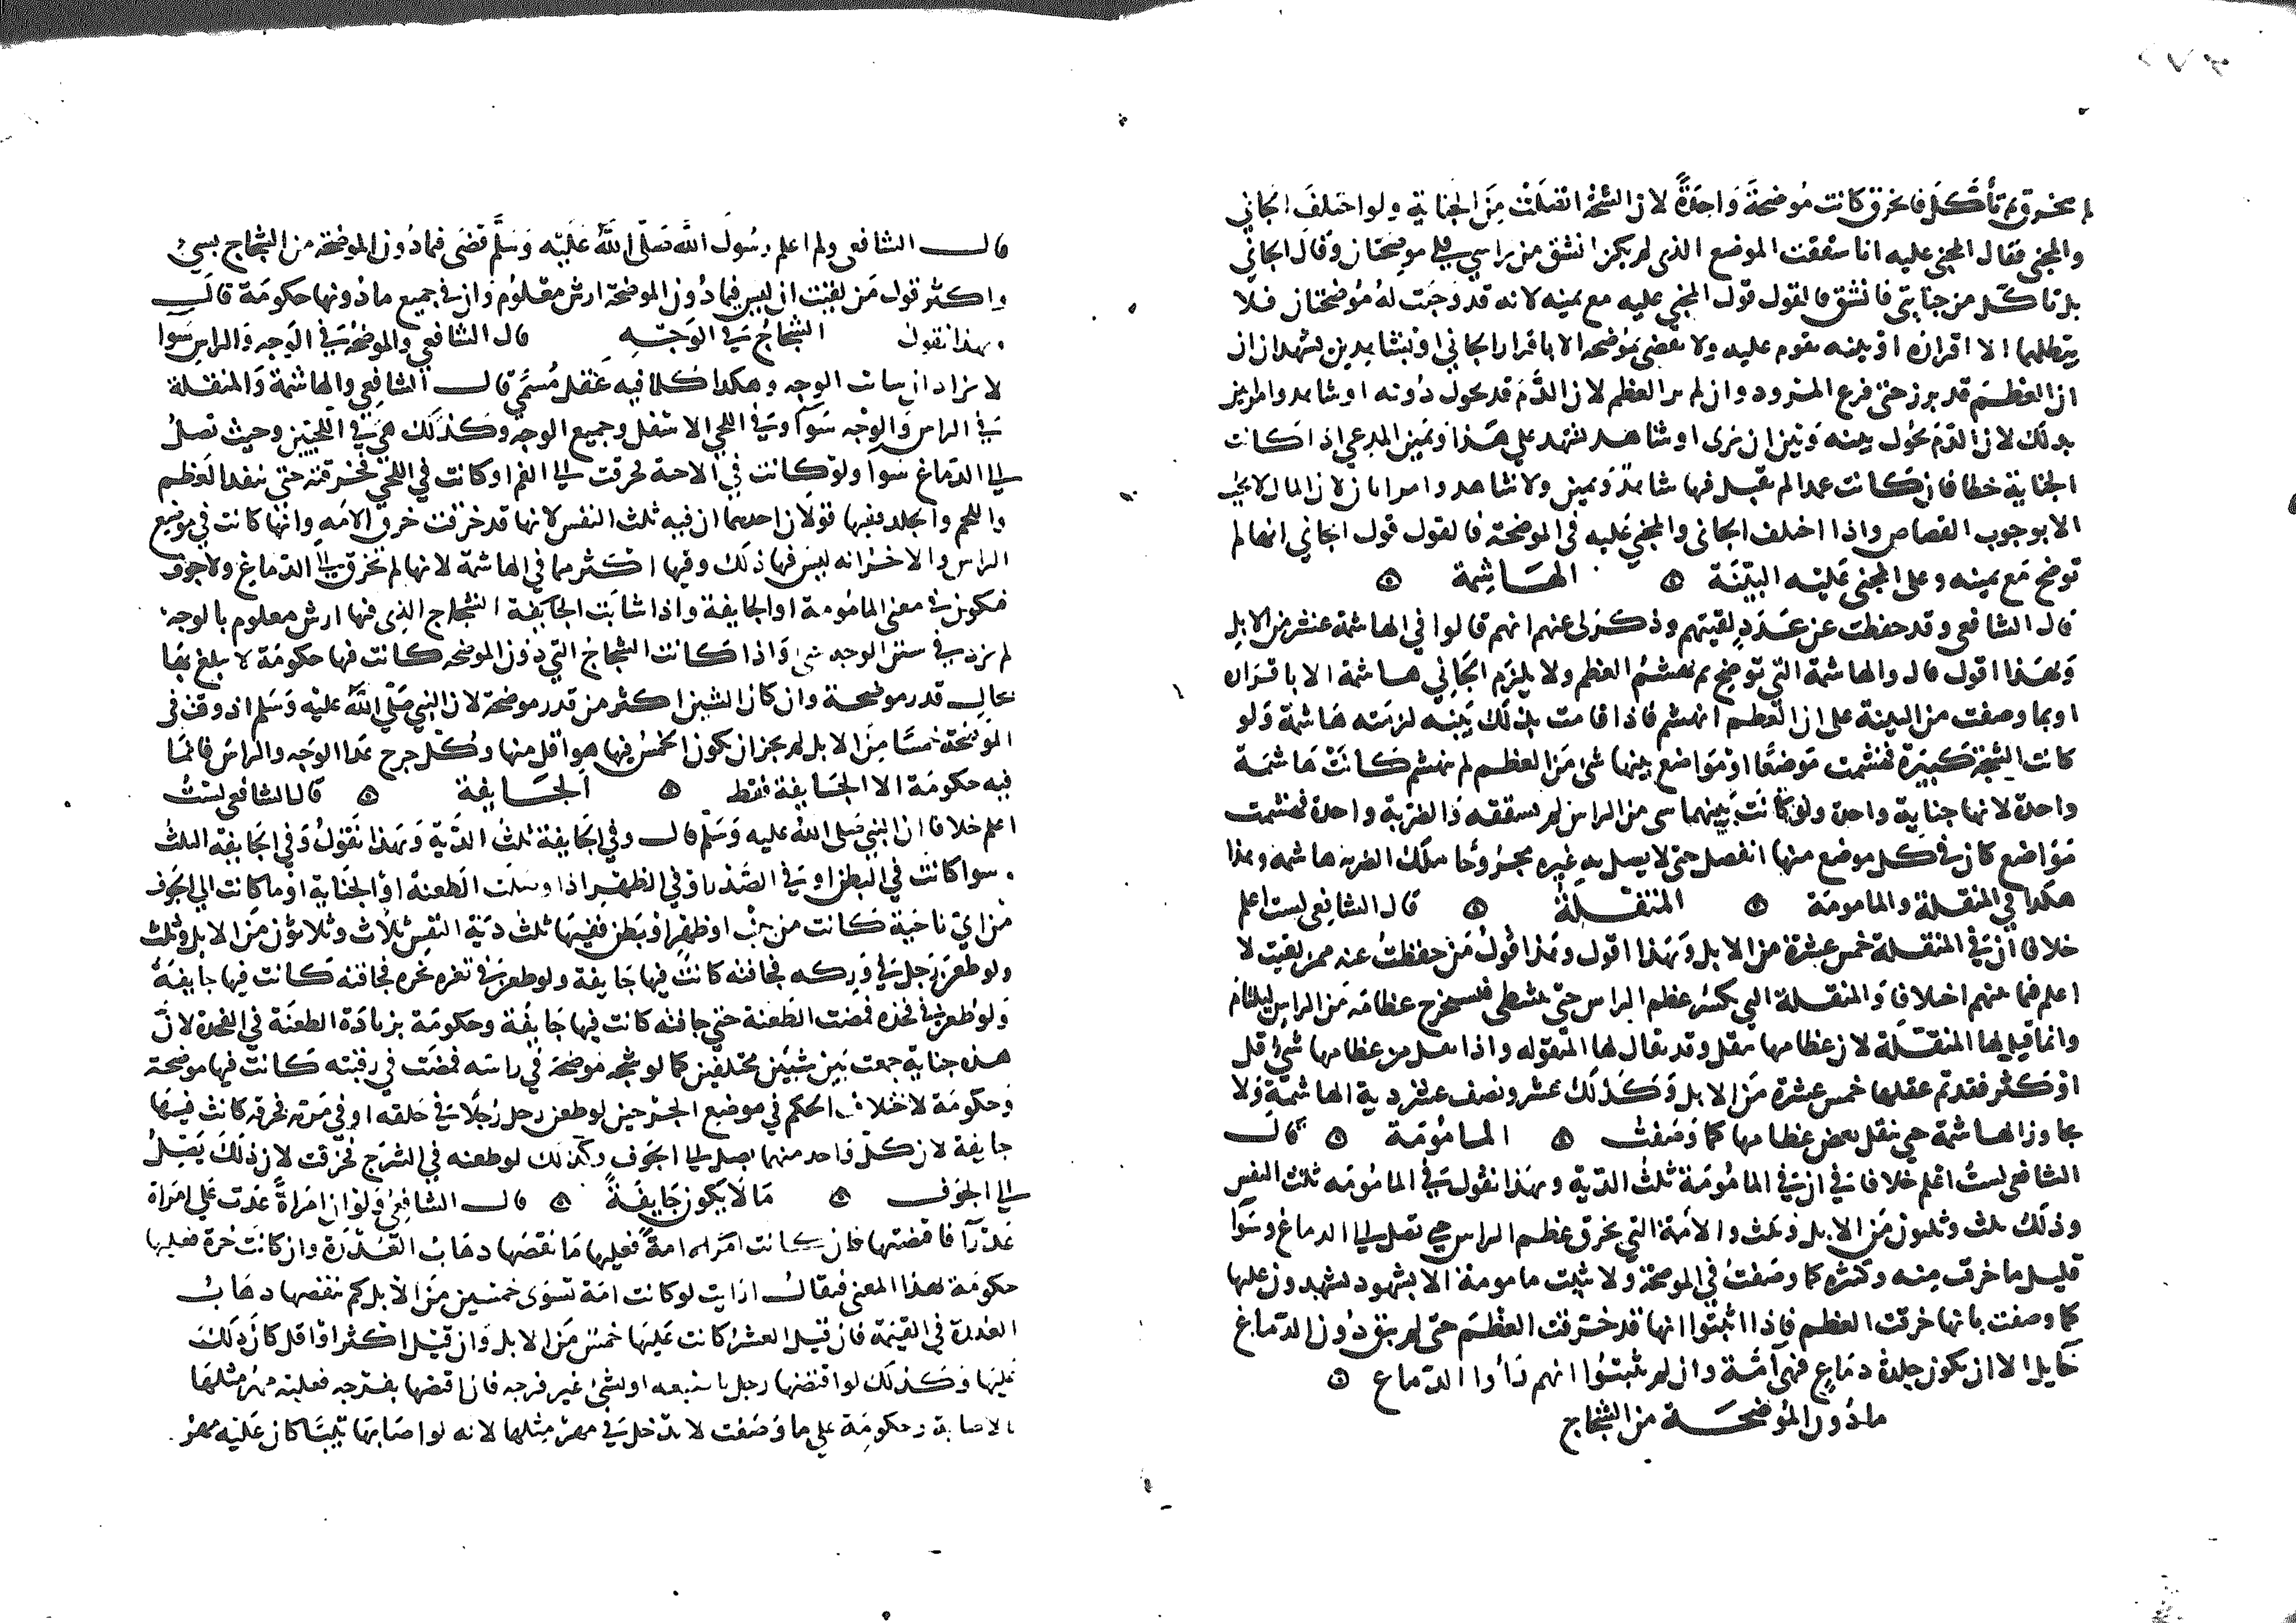 لم ينخرق ثم تأكل فانخرق كانت موضحة واحدة لان الشجة اتصلت من الجناية ولو اختلف الجاني
والمجني فقال المجني عليه انا شققت الموضع الذي لم يكن انشق من راسي فلي موضحتان وقال الجاني
بل تاكل من جنايتي فانشق فالقول قول المجني عليه مع يمينه لانه قد وجبت له موضحتان فلا
يبطلهما الا اقراره او بينه تقوم عليه ولا يقضى بموضحه الا باقرار الجاني او بشاهدين يشهدان ان
ان العظم قد برز حتى قرع المرود وان لم ير العظم لان الدم قد يحول دونه او شاهد وامراتين
بذلك لان الدم يحول بينه وبين ان يرى او شاهد يشهد على هذا ويمين المدعي اذا كانت
الجناية خطا فان كانت عمدا لم يقبل فيها شاهد ويمين ولا شاهد وامراتان لان المال لا يجب
الا بوجوب القصاص واذا اختلف الجاني والمجني عليه في الموضحة فالقول قول الجاني انها لم
توضح مع يمينه وعلى المجني عليه البينة الهاشمة
قال الشافعي وقد حفظت عن عدد لقيتهم وذكر لي عنهم انهم قالوا في الهاشمة عشر من الابل
وبهذا اقول قال والهاشمة التي توضح ثم تهشم العظم ولا يلزم الجاني هاشمة الا باقراره
او بما وصفت من البينة على ان العظم انهشم فاذا قامت بذلك بينه لزمته هاشمة ولو
كانت الشجة كبيرة فهشمت موضعا او مواضع بينها شي من العظم لم ينهشم كانت هاشمة
واحدة لانها جناية واحدة ولو كانت بينهما شي من الراس لم تشققه والضربة واحدة فهشمت
مواضع كان في كل موضع منها انفصل حتى لا يصل به غيره مجروحا بتلك الضربه هاشمه وهذا
هكذا في المنقلة والمامومة المنقلة قال الشافعي لست اعلم
خلافا ان في المنقلة خمس عشرة من الابل وبهذا اقول وهذا قول من حفظت عنه ممن لقيت لا
اعلم فيما بينهم اختلافا والمنقلة التي تكسر عظم الراس حتى يتشظى فتستخرج عظامه من الراس ليلتام
وانما قيل لها المنقلة لان عظامها تنقل وقد يقال لها المنقوله واذا نقل من عظامها شي قل
او كثر فقد تم عقلها خمس عشرة من الابل وكذلك عشر ونصف عشر دية الهاشمة ولا
يجاوز الهاشمة حتى ينقل بعض عظامها كما وصفت المامومة قال
الشافعي لست اعلم خلافا في ان في المامومة ثلث الدية وبهذا نقول في المامومه ثلث النفس
وذلك ثلث وثلثون من الابل وثلث والامة التي تخرق عظم الراس حتى تصل الى الدماغ وسوا
قليل ما خرقت منه وكثيره كما وصفت في الموضحة ولا نثبت مامومة الا بشهود يشهدون عليها
كما وصفت بانها خرقت العظم فاذا اثبتوا انها قد خرقت العظم حتى لم يبق دون الدماغ
حايل الا ان يكون جلدة دماغ فهي آمة وان لم يثبتوا انهم راوا الدماغ
مادون الموضحة من الشجاج
قال الشافعي ولم اعلم رسول الله صلى الله عليه وسلم قضى فيما دون الموضحة من الشجاج بشيء
واكثر قول من لقيت ان ليس فيما دون الموضحة ارش معلوم وان في جميع مادونها حكومة قال
وبهذا نقول الشجاج في الوجه قال الشافعي والموضحة في الوجه والراس سوا
لا يزاد ان شانت الوجه وهكذا كل ما فيه عقل مسمى قال الشافعي والهاشمة والمنقلة
في الراس والوجه سوا وفي اللحي الاسفل وجميع الوجه وكذلك هي في اللحيين وحيث تصل
الى الدماغ سوا ولو كانت في الوجنة فخرقت الى الفم او كانت في اللحي فخرقته حتى تنفذ العظم
واللحم والجلد ففيها قولان احدهما ان فيه ثلث النفس لانها قد خرقت خرق الامه وانها كانت في موضع
الراس والاخر انه ليس فيها ذلك وفيها اكثر مما في الهاشمة لانها لم تخرق الى الدماغ ولا جوف
فتكون في معنى المامومة او الجايفة واذا شانت الجايفة الشجاج الذي فيها ارش معلوم بالوجه
لم يزد في شين الوجه شي واذا كانت الشجاج التي دون الموضحه كانت فيها حكومة لا يبلغ بها
بحال قدر موضحة وان كان الشين اكثر من قدر موضحة لان النبي صلى الله عليه وسلم اذ وقت في
الموضحة خمسا من الابل لم يجز ان يكون الخمس فيها هو اقل منها وكل جرح عدا الوجه والراس فانما
فيه حكومة الا الجايفة فقط الجايفة قال الشافعي لست
اعلم خلافا ان النبي صلى الله عليه وسلم قال وفي الجايفة ثلث الدية وبهذا نقول وفي الجايفة الثلث
سوا كانت في البطن او في الصدر او في الظهر اذا وصلت الطعنة او الجناية او ما كانت الى الجوف
من اي ناحية كانت من جنب او ظهر او بطن ففيها ثلث دية النفس ثلاث وثلاثون من الابل وثلث
ولو طعن رجل في وركه فجافته كانت فيها جايفة ولو طعن في ثغره نحره فجافته كانت فيها جايفة
ولو طعن في فخذه فمضت الطعنة حتى جافته كانت فيها جايفة وحكومة بزيادة الطعنة في الفخذ لان
هذه جناية جمعت بين شيئين مختلفين كما لو شجه موضحة في راسه فمضت في رقبته كانت فيها موضحة
وحكومة لاختلاف الحكم في موضع الجرحين لو طعن رجل رجلا في حلقه او في مريه فخرقه كانت فيها
جايفة لان كل واحد منهما يصل الى الجوف وكذلك لو طعنه في الشرج فخرقت لان ذلك يصل
الى الجوف ما لا يكون جايفة قال الشافعي ولو ان امراة عدت على امراة
عذرا فافتضتها فان كانت امراه امة فعليها ما نقصها ذهاب العذرة وان كانت حرة فعليها
حكومة بهذا المعنى فيقال ارايت لو كانت امة تسوى خمسين من الابل كم نقصها ذهاب
العذرة في القيمة فان قيل العشر كانت عليها خمس من الابل وان قيل اكثر او اقل كان ذلك
عليها وكذلك لو اقتضها رجل باصبعه او بشي غير فرجه فان اقتضها بفرجه فعليه مهر مثلها
بالاصابة وحكومة على ما وصفت لا تدخل في مهر مثلها لانه لو اصابها ثيبا كان عليه مهر